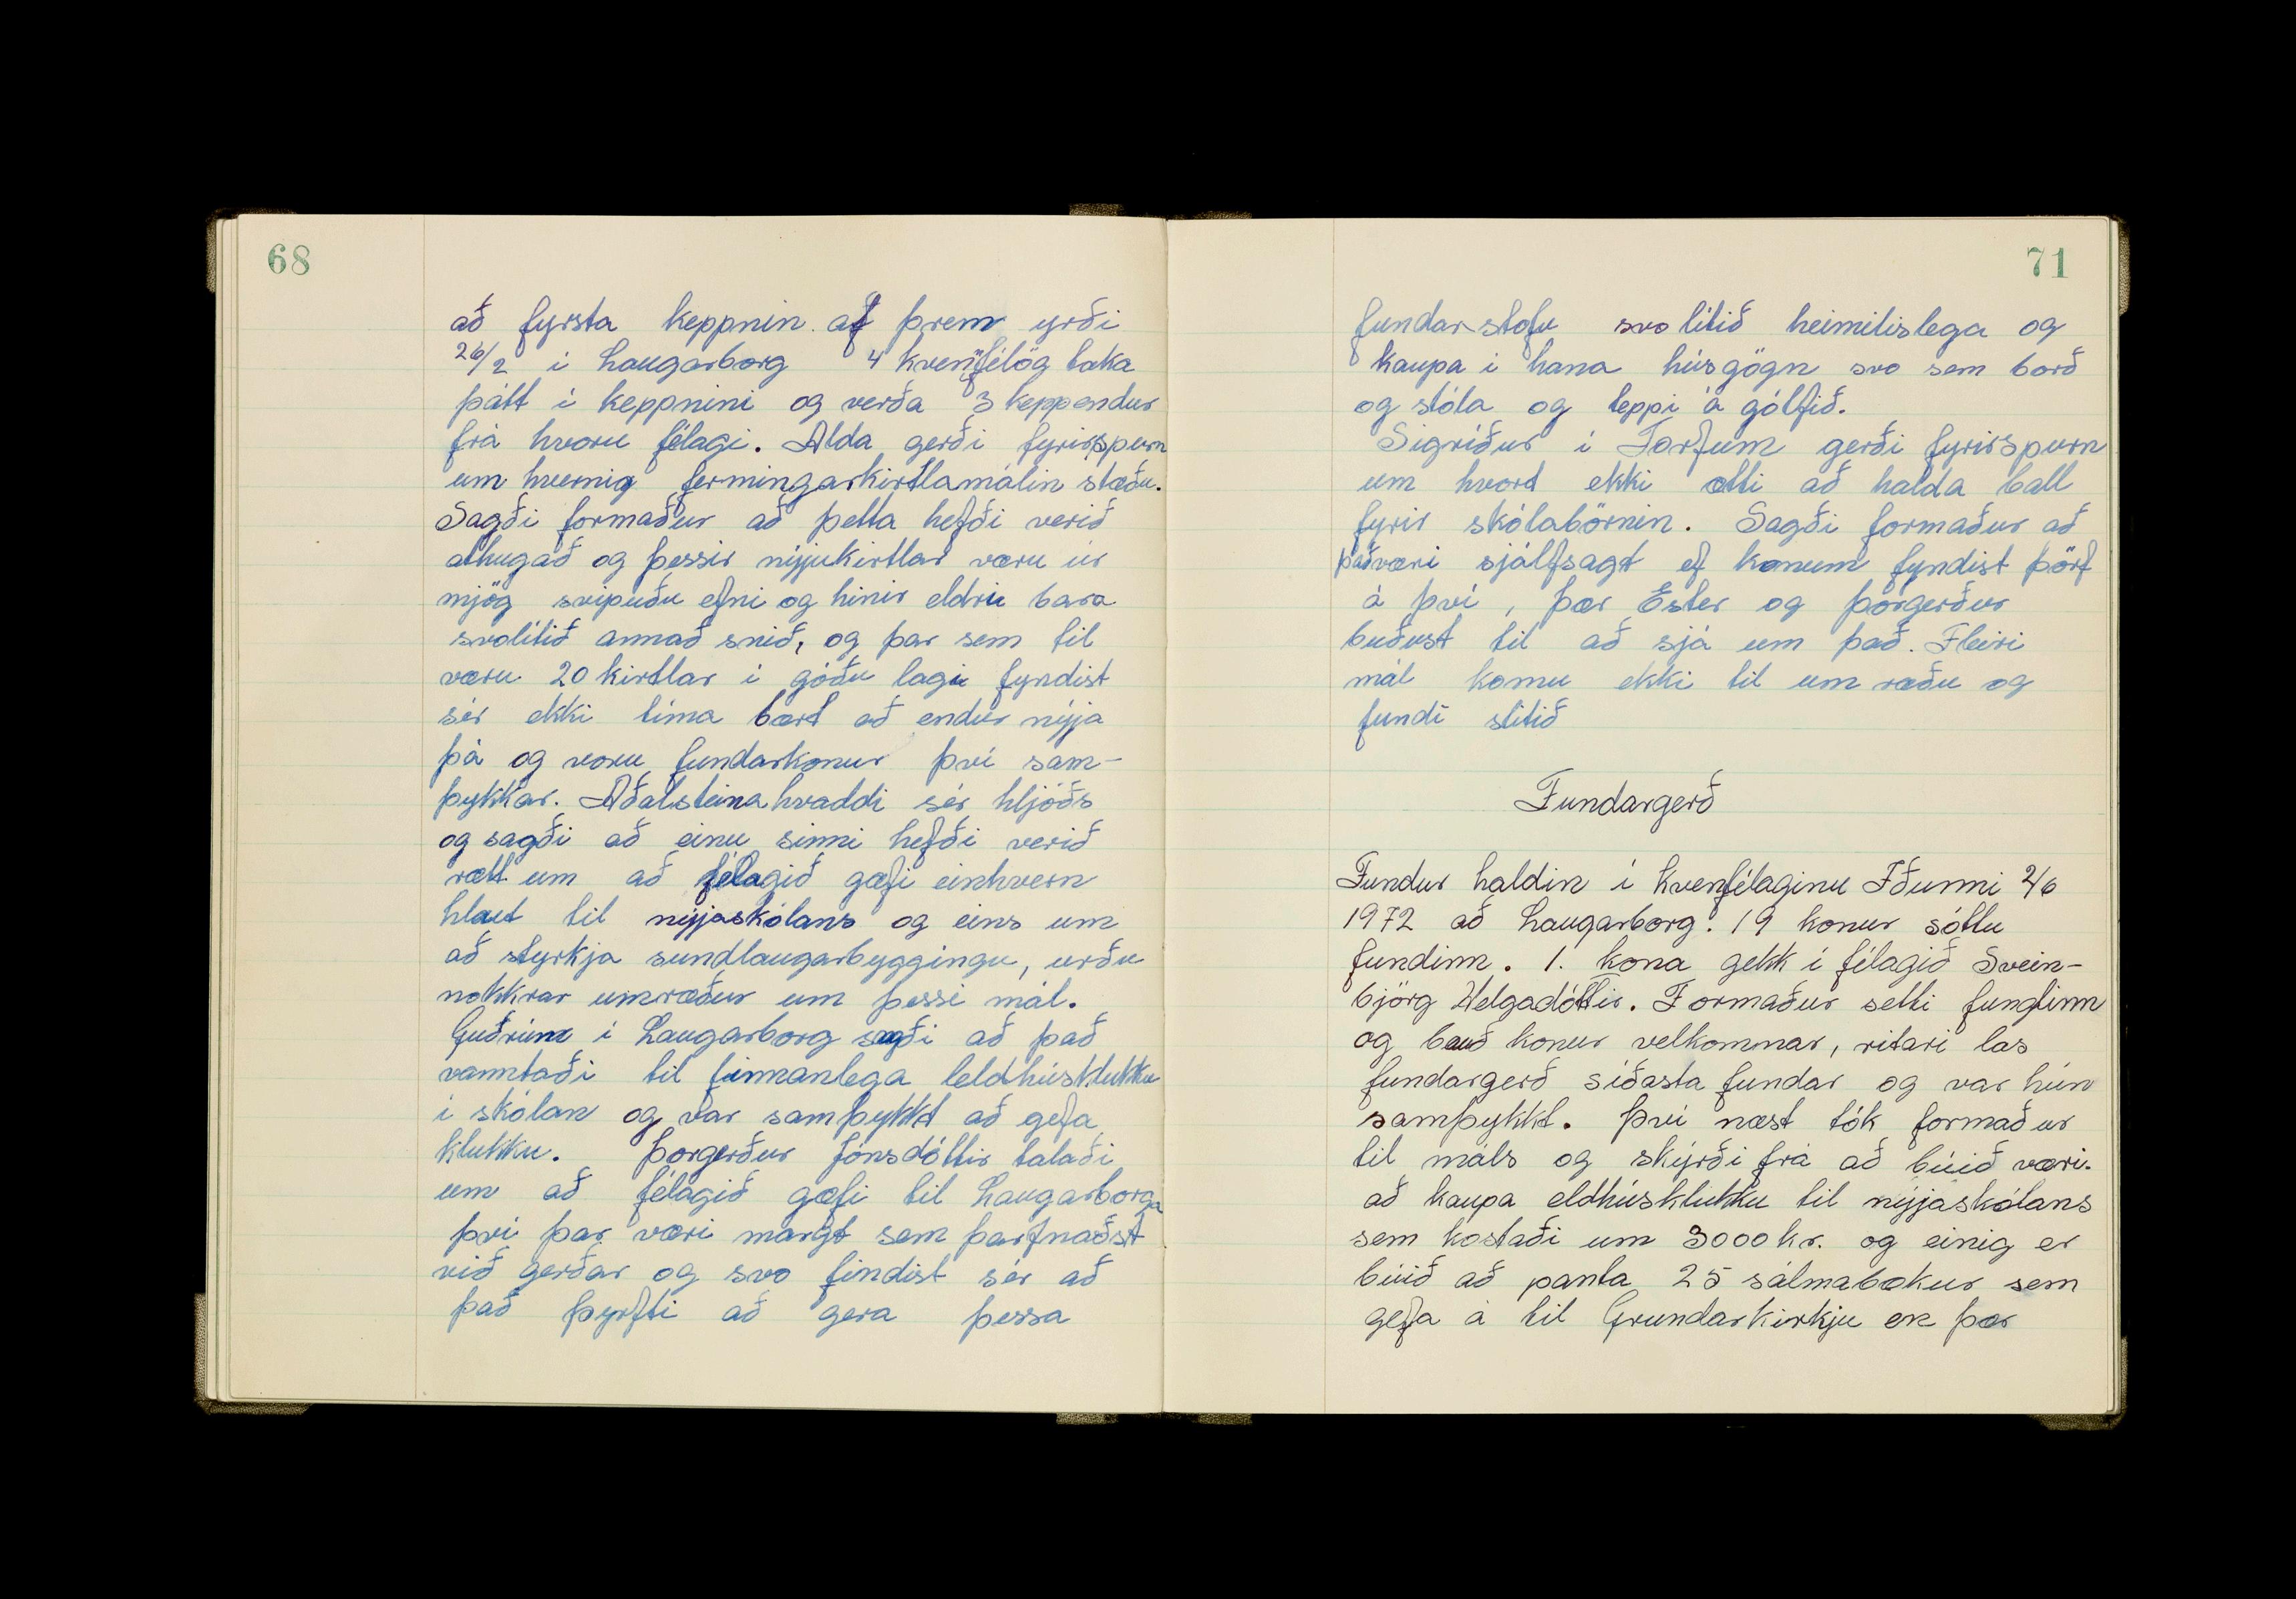 68
að fyrsta keppnin af þrem yrði
26/2 í Laugarborg 4 kvenfélög taka
þátt í keppnini og verða 3 keppendur
frá hvoru félagi. Alda gerði fyrirspurn
um hvernig fermingarkirtlamálin stæðu.
Sagði formaður að þetta hefði verið
athugað og þessir nýjukirtlar væru úr
mjög svipuðu efni og hinir eldri bara
svolítið annað snið, og þar sem til
væru 20 kirtlar í góðu lagi fyndist
sér ekki tíma bært að endur nýja
þá og voru fundarkonur því sam-
þykkar. Aðalsteina hvaddi sér hljóðs
og sagði að einu sinni hefði verið
rætt um að félagið gæfi einhvern
hlut til nýjaskólans og eins um
að styrkja sundlaugarbyggingu, urðu
nokkrar umræður um þessi mál.
Guðrún í Laugarborg sagði að það
vanntaði til finnanlega eldhúsklukku
í skólan og var samþykkt að gefa
klukku. Þorgerður Jónsdóttir talaði
um að félagið gæfi til Laugarborga
því þar væri margt sem þarfnaðst
við gerðar og svo findist sér að
það þyrfti að gera þessa
71
fundarstofu svo lítið heimilislega og
kaupa í hana húsgögn svo sem borð
og stóla og teppi á gólfið.
Sigríður í Torfum gerði fyrirspurn
um hvort ekki ætti að halda ball
fyrir skólabörnin. Sagði formaður að
það væri sjálfsagt ef konum fyndist þörf
á því, þær Ester og Þorgerður
buðust til að sjá um það. Fleiri
mál komu ekki til um ræðu og
fundi slitið
Fundargerð
Fundur haldin í kvenfélaginu Iðunni 2/6
1972 að Laugarborg. 19 konur sóttu
fundinn. 1. kona gekk í félagið Svein-
björg Helgadóttir. Formaður setti fundinn
og bauð konur velkomnar, ritari las
fundargerð síðasta fundar og var hún
samþykkt. Því næst tók formaður
til máls og skýrði frá að búið væri.
að kaupa eldhúsklukku til nýjaskólans
sem kostaði um 3000 kr. og einig er
búið að panta 25 sálmabækur sem
gefa á til Grundarkirkju en þær